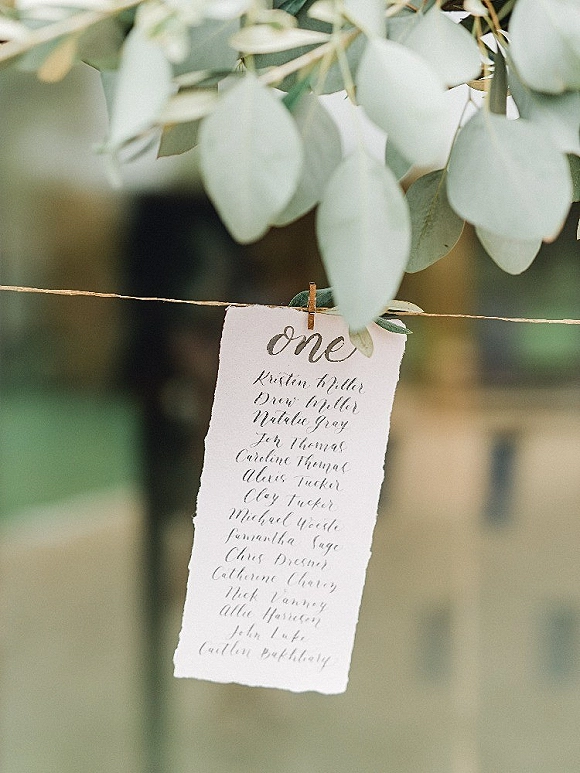 one
Kristen Miller
Drew Miller
Natalie Gray
Jen Thomas
Caroline Thomas
Alexis Tucker
Clay Tucker
Michael Woeste
Samantha Sage
Chris Dresner
Catherine
Nick Vanney
Allie Harrison
John Luke
Caitlin